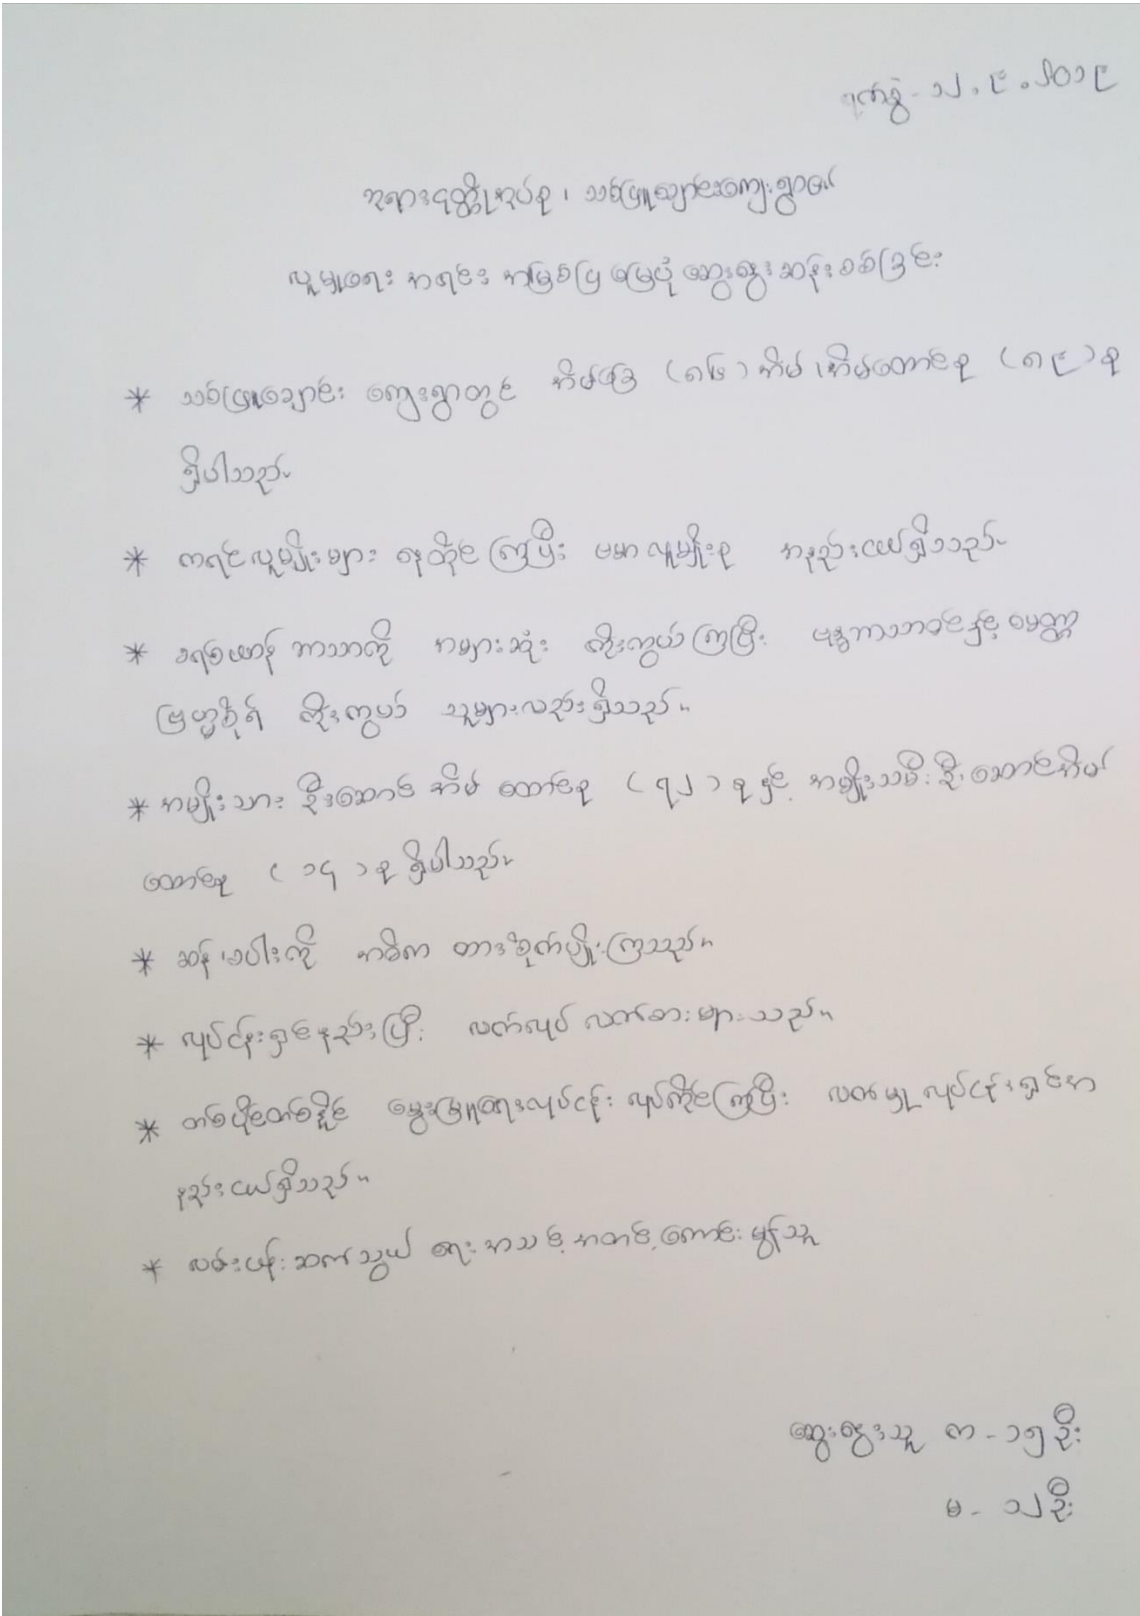 ရက်စွဲ - ၁၂.၉.၂၀၁၉
ဘုရားငုတ္တိုအုပ်စု၊ သစ်ဖြူချောင်းကျေးရွာ၏
လူမှုရေး အရင်း အမြစ်ပြ မြေပုံ ဆွေးနွေး ဆန်းစစ်ခြင်း
* သစ်ဖြူချောင်း ကျေးရွာတွင် အိမ်ခြေ (၈၆) အိမ်၊ အိမ်ထောင်စု (၈၉) စု
ရှိပါသည်။
* ကရင်လူမျိုးများ နေထိုင်ကြပြီး ဗမာလူမျိုးစု အနည်းငယ်ရှိသည်။
* ခရစ်ယာန်ဘာသာကို အများဆုံး ကိုးကွယ်ကြပြီး ဗုဒ္ဓဘာသာဝင်နှင့် မေတ္တာ
ဗြဟ္မစိုရ် ကိုးကွယ် သူများလည်းရှိသည်။
* အမျိုးသား ဦးဆောင် အိမ်ထောင်စု (၇၂) စုနှင့် အမျိုးသမီး ဦးဆောင်အိမ်
ထောင်စု (၁၄) စု ရှိပါသည်။
* ဆန်၊ စပါးကို အဓိက ထားစိုက်ပျိုးကြသည်။
* လုပ်ငန်းရှင်နည်းပြီး လက်လုပ် လက်စားများသည်။
* တစ်ပိုင်တစ်နိုင် မွေးမြူရေးလုပ်ငန်း လုပ်ကိုင်ကြပြီး လက်မှုလုပ်ငန်းရှင်အ
နည်းငယ်ရှိသည်။
* လမ်းပန်းဆက်သွယ် ရေးအသင့်အတင့်ကောင်းမွန်သည်
ဆွေးနွေးသူ က - ၁၅ ဦး
မ - ၁၂ ဦး